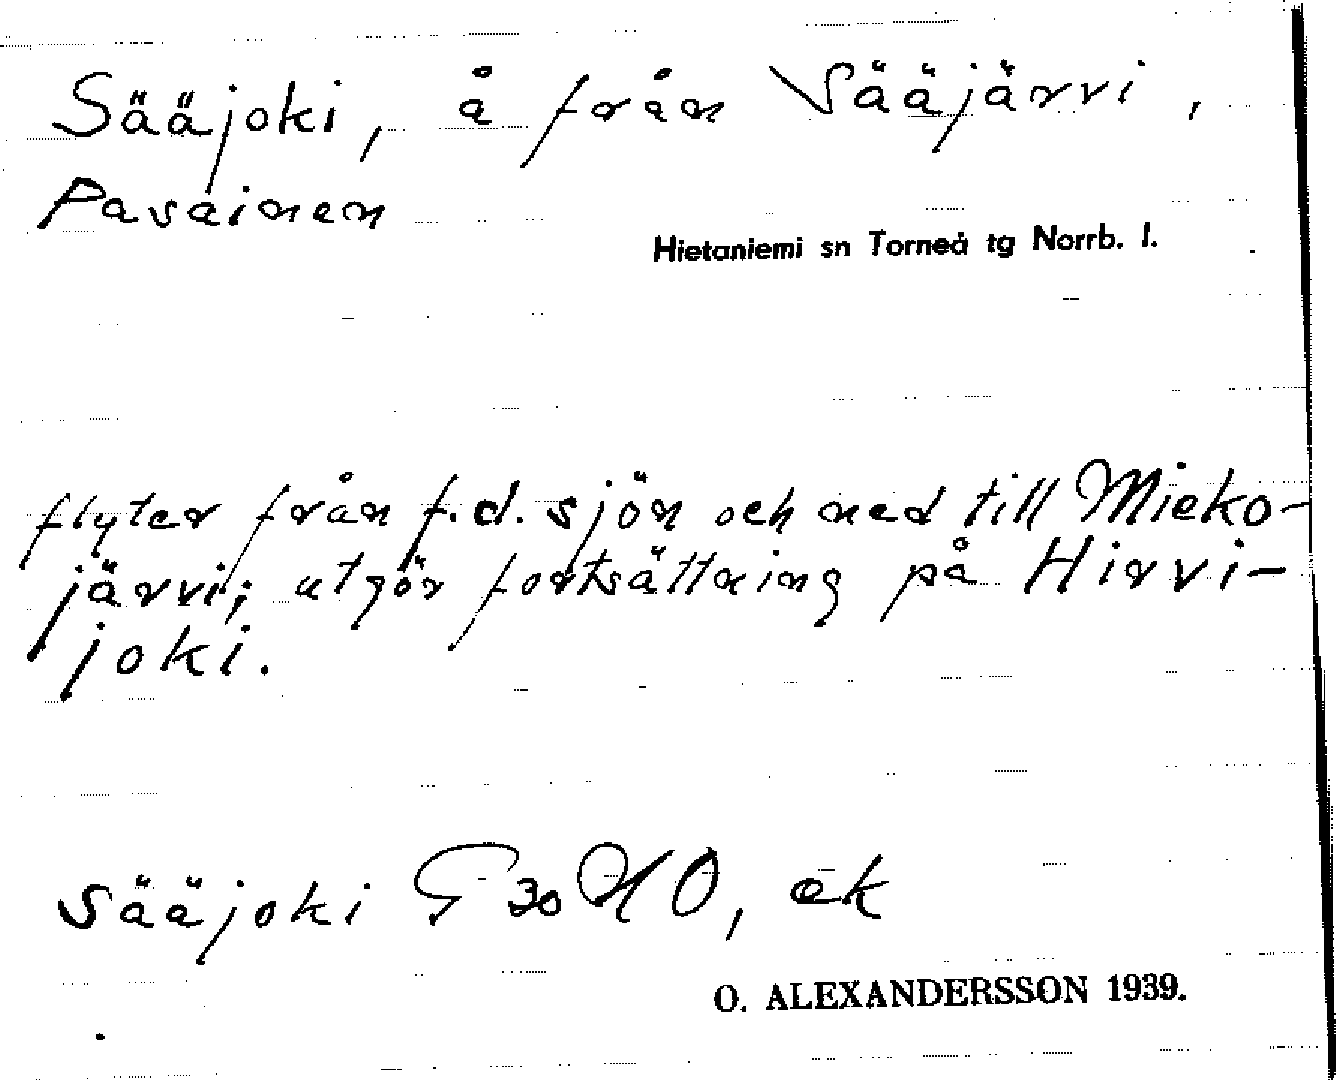 Sääjoki, å från Sääjärvi,
Pasainen
Hietaniemi sn Torneå tg Norrb. l.
flyter från f.d. sjön och ned till Mieko-
järvi; utgör fortsättning på Hirvi-
joki.
Sääjoki G 30 NO, ek
O. ALEXANDERSSON 1939.